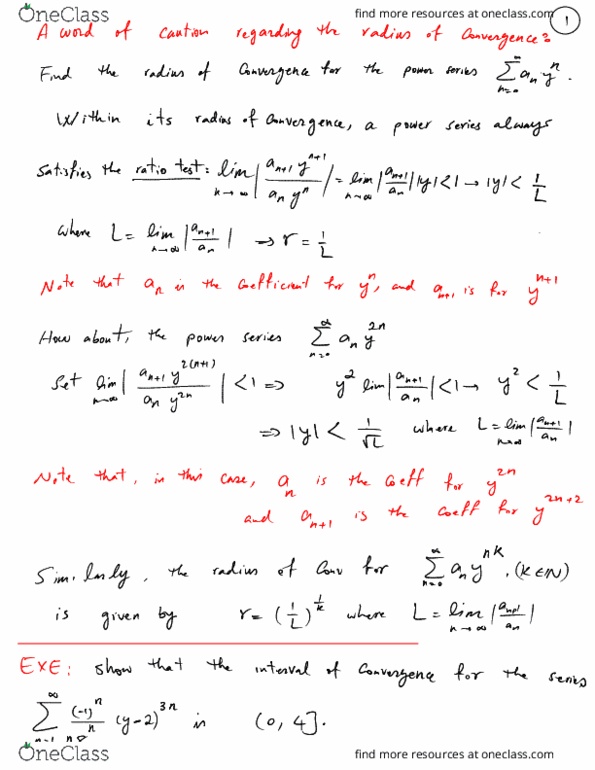 OneClass find more resources at oneclass.com
1
A word of caution regarding the radius of Convergence:
Find the radius of Convergence for the power series ∑_{n=0}^{∞} a_n y^n.
Within its radius of Convergence, a power series always
satisfies the ratio test: lim_{n→∞} |a_{n+1} y^{n+1} / a_n y^n| = lim_{n→∞} |a_{n+1}/a_n| |y| < 1 → |y| < 1/L
where L = lim_{n→∞} |a_{n+1}/a_n| ⇒ r = 1/L
Note that a_n is the Coefficient for y^n, and a_{n+1} is for y^{n+1}
How about, the power series ∑_{n=0}^{∞} a_n y^{2n}
Set lim_{n→∞} |a_{n+1} y^{2(n+1)} / a_n y^{2n}| < 1 ⇒ y^2 lim |a_{n+1}/a_n| < 1 → y^2 < 1/L
⇒ |y| < 1/√L where L = lim_{n→∞} |a_{n+1}/a_n|
Note that, in this case, a_n is the Coeff for y^{2n}
and a_{n+1} is the coeff for y^{2n+2}
Similarly, the radius of Conv for ∑_{n=0}^{∞} a_n y^{nk}, (K∈N)
is given by r = (1/L)^{1/k} where L = lim_{n→∞} |a_{n+1}/a_n|
EXE: show that the interval of Convergence for the series
∑_{n=1}^{∞} (-1)^n / n (y-2)^{3n} is (0, 4].
OneClass find more resources at oneclass.com